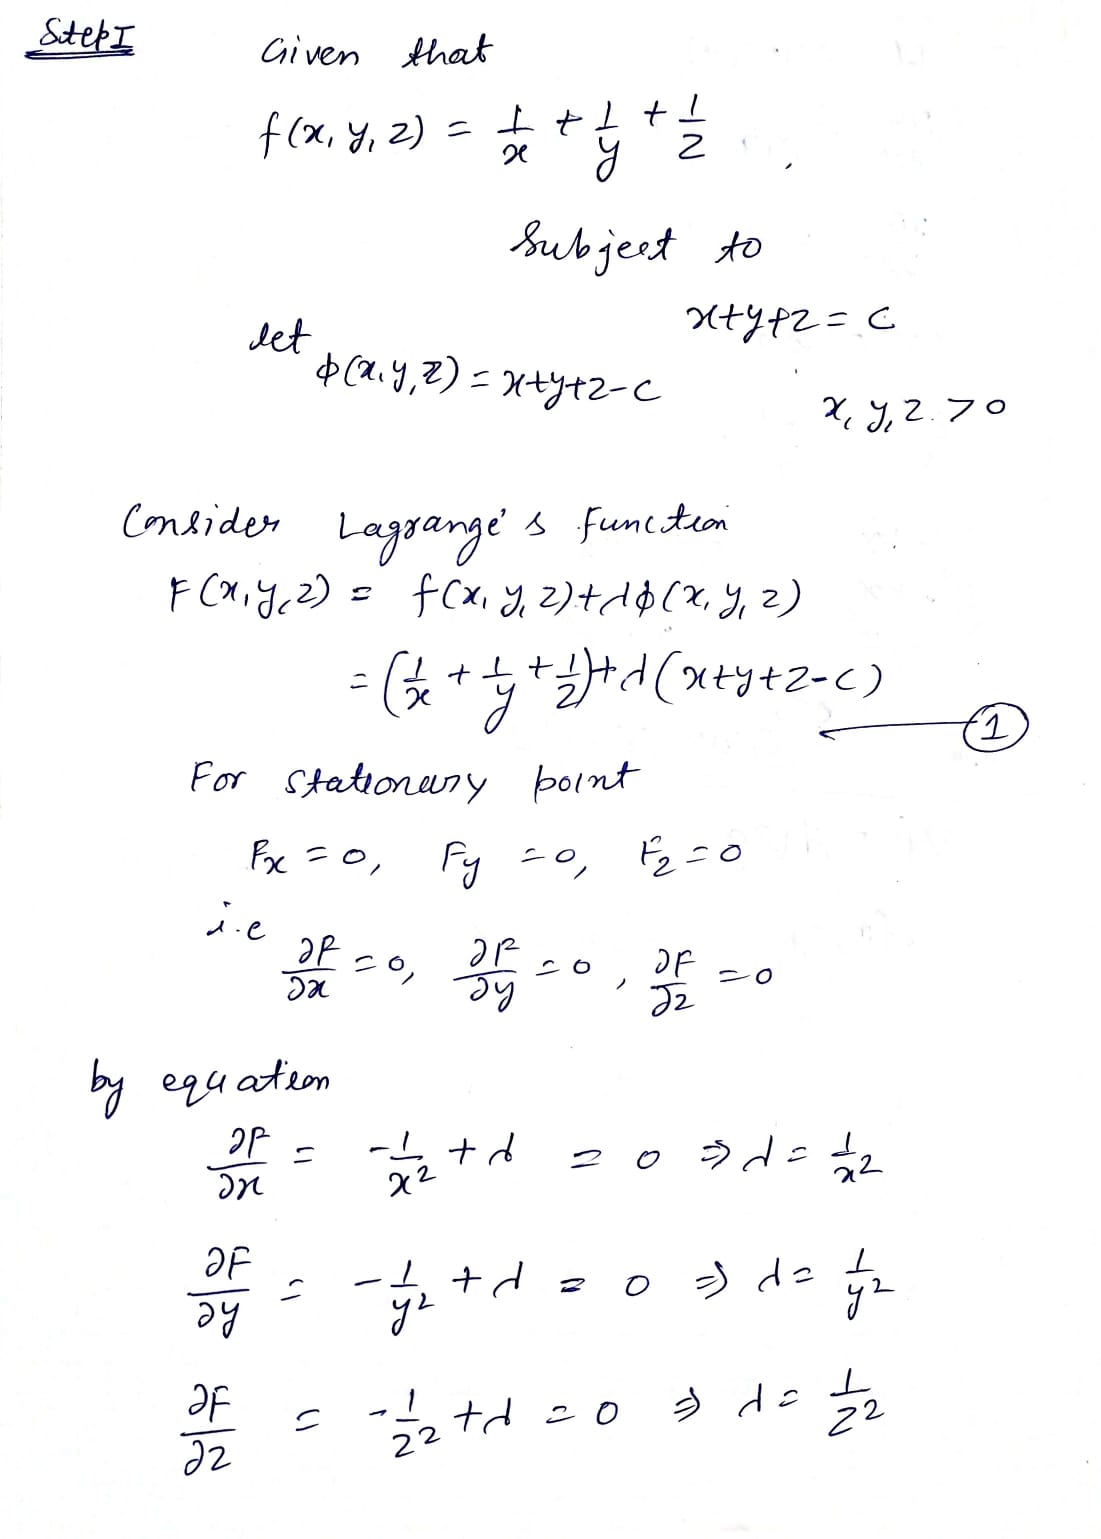 Step I
Given that
f(x, y, z) = 1/x + 1/y + 1/z ,
Subject to
x+y+z = c
let
ϕ(x, y, z) = x+y+z-c
x, y, z > 0
Consider Lagrange's function
F(x, y, z) = f(x, y, z)+λϕ(x, y, z)
= (1/x + 1/y + 1/z)+λ(x+y+z-c)
①
For stationary point
Fx = 0, Fy = 0, Fz = 0
i.e
∂F/∂x = 0, ∂F/∂y = 0, ∂F/∂z = 0
by equation
∂F/∂x = -1/x² + λ = 0 ⇒ λ = 1/x²
∂F/∂y = -1/y² + λ = 0 ⇒ λ = 1/y²
∂F/∂z = -1/z² + λ = 0 ⇒ λ = 1/z²